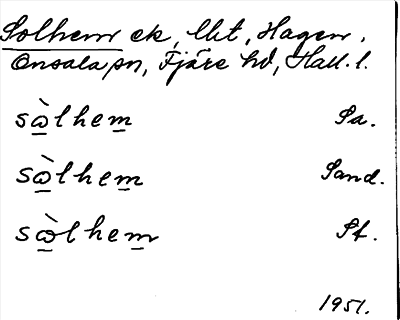 Solhem ek, lht, Hagen,
Onsala sn, Fjäre hd, Hall. l.
sòlhem Sa.
sòlhem Sand.
sòlhem St.
1951.